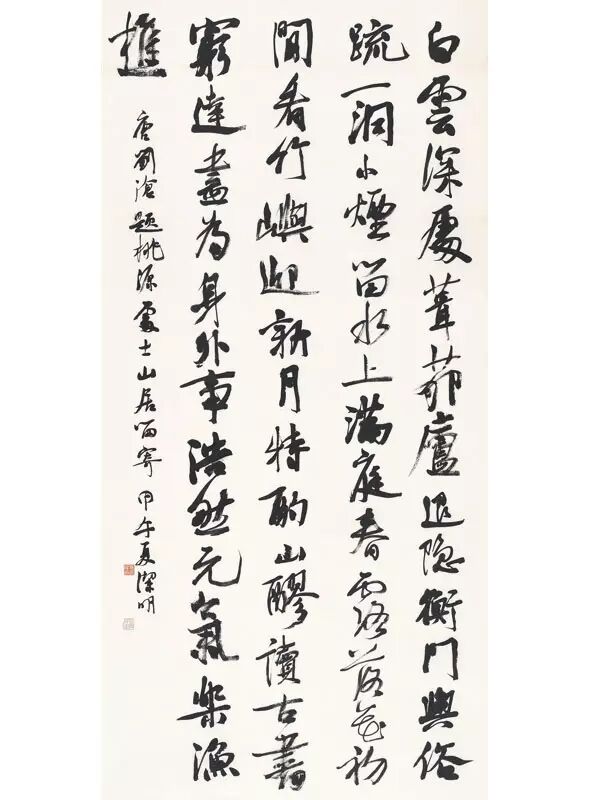 白雲深處葺茆廬退隐衡門與俗
疏一洞小煙留水上滿庭春露落花初
閒看竹嶼迎新月特酌山醪讀古書
窮達盡為身外事浩然元氣樂漁
樵
唐劉滄題桃源處士山居留寄 甲午夏